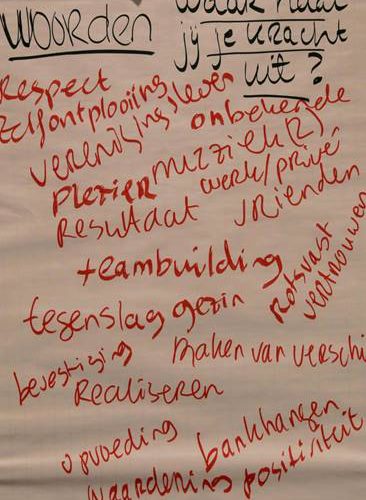 WOORDEN
Waar haal
jij je kracht
uit?
Respect
Zelfontplooiing
verenigingsleven
onbekende
Plezier
muziek(2)
werk/privé
Resultaat
vrienden
teambuilding
rotsvast
vertrouwen
tegenslag gezin
bevestiging
maken van verschi
Realiseren
opvoeding
bankhangen
waardering
positiviteit